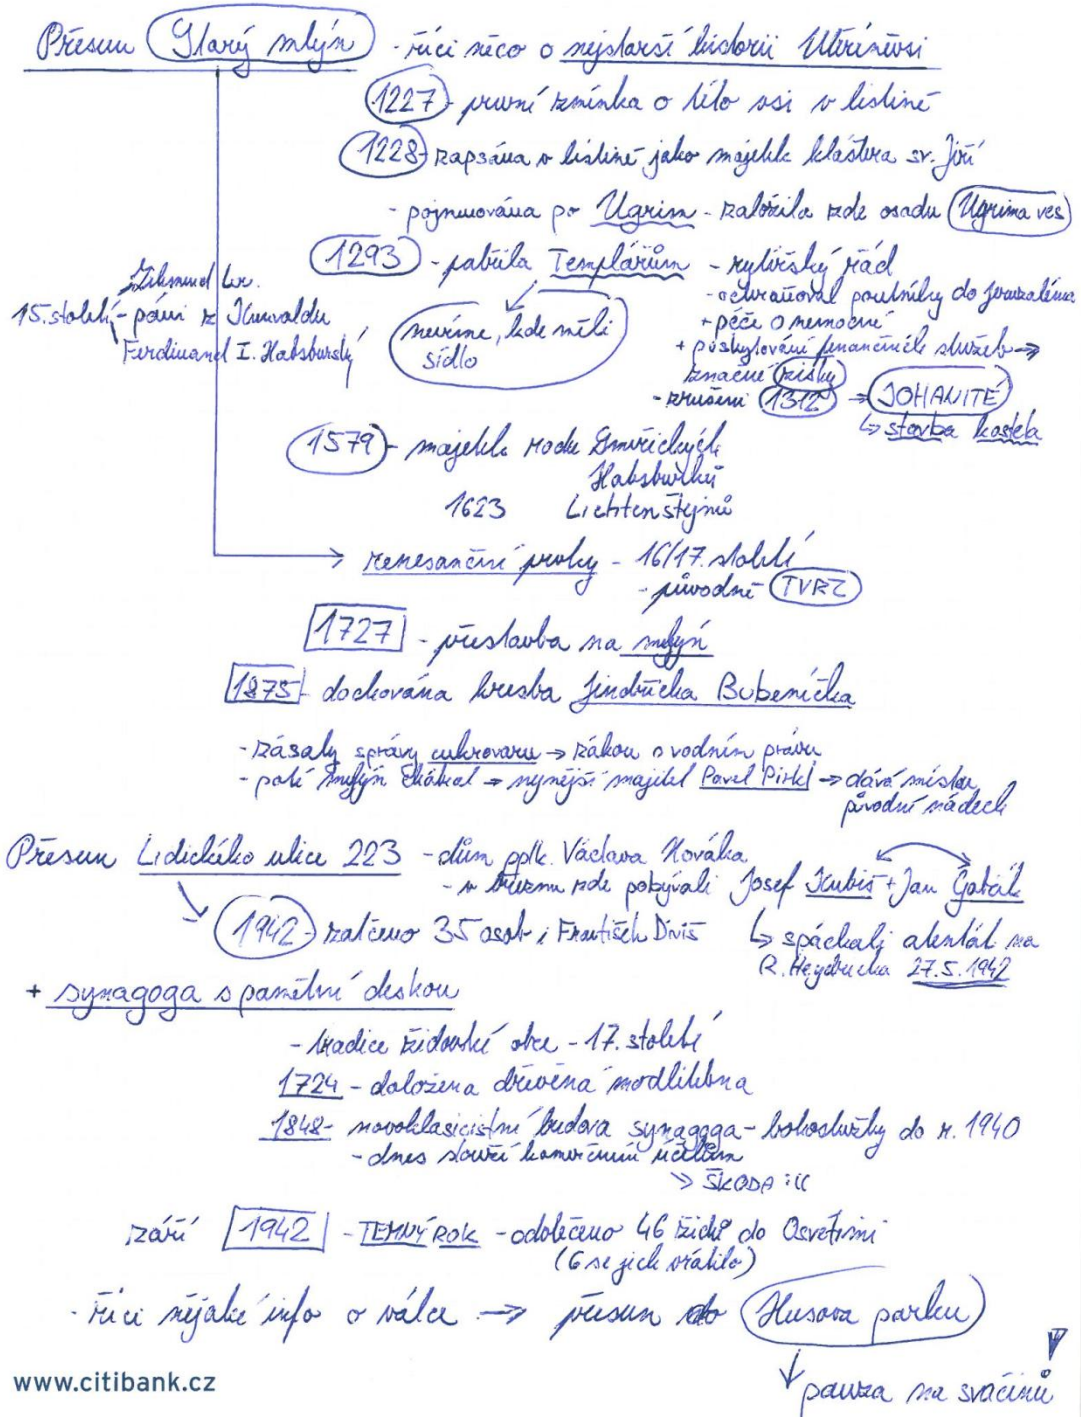 Přesun Starý mlýn - říci něco o nejstarší historii Uhříněvsi
1227 - první zmínka o této vsi v listině
1228 - zapsána v listině jako majetek kláštera sv. Jiří
- pojmenována po Ugrim - založila zde osadu Ugrima ves
1293 - patřila Templářům - rytířský řád
- ochraňoval poutníky do Jeruzaléma
+ péče o nemocné
+ poskytování finančních služeb →
značné zisky
- zrušeni 1312 → JOHANITÉ
↳ stavba kostela
nevíme, kde měli
sídlo
Zikmund Luc.
15. století - páni z Kunvaldu
Ferdinand I. Habsburský
1579 - majetek rodu Smiřických
Habsburků
1623 Lichtenštejnů
→ renesanční prvky - 16/17. století
- původně TVRZ
1727 - přestavba na mlýn
1875 - dochována kresba Jindřicha Bubeníčka
- zásahy správy cukrovaru → zákon o vodním právu
- poté mlýn chátral → nynější majitel Pavel Pirkl → dává místu
původní nádech
Přesun Lidického ulice 223 - dům pplk. Václava Nováka
- v březnu zde pobývali Josef Kubiš + Jan Gabčík
↳ spáchali atentát na
R. Heydricha 27.5.1942
1942 - zatčeno 35 osob i František Diviš
+ synagoga s pamětní deskou
- tradice židovské obce - 17. století
1724 - doložena dřevěná modlitebna
1848 - novoklasicistní budova synagoga - bohoslužby do r. 1940
- dnes slouží komerčním účelům
→ ŠKODA :((
září 1942 - TEMNÝ ROK - odvlečeno 46 židů do Osvětimi
(6 se jich vrátilo)
- říci nějaké info o válce → přesun do Husova parku
↓ pauza na svačinu !
www.citibank.cz